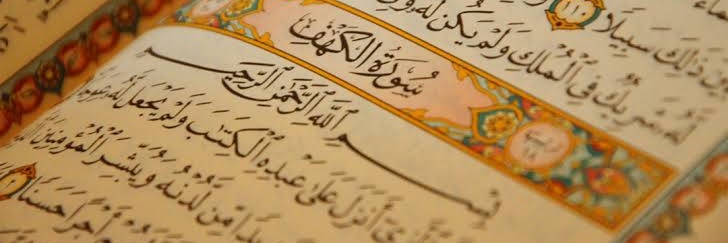 ذَٰلِكَ سَبِيلًا ١١٠
لَّهُۥ شَرِيكٌ فِى ٱلْمُلْكِ وَلَمْ يَكُن لَّهُۥ
سُورَةُ الْكَهْفِ
بِسْمِ ٱللَّهِ ٱلرَّحْمَٰنِ ٱلرَّحِيمِ
أَنزَلَ عَلَىٰ عَبْدِهِ ٱلْكِتَٰبَ وَلَمْ يَجْعَل لَّهُۥ عِوَجًا
مِّن لَّدُنْهُ وَيُبَشِّرَ ٱلْمُؤْمِنِينَ
أَجْرًا حَسَنًا